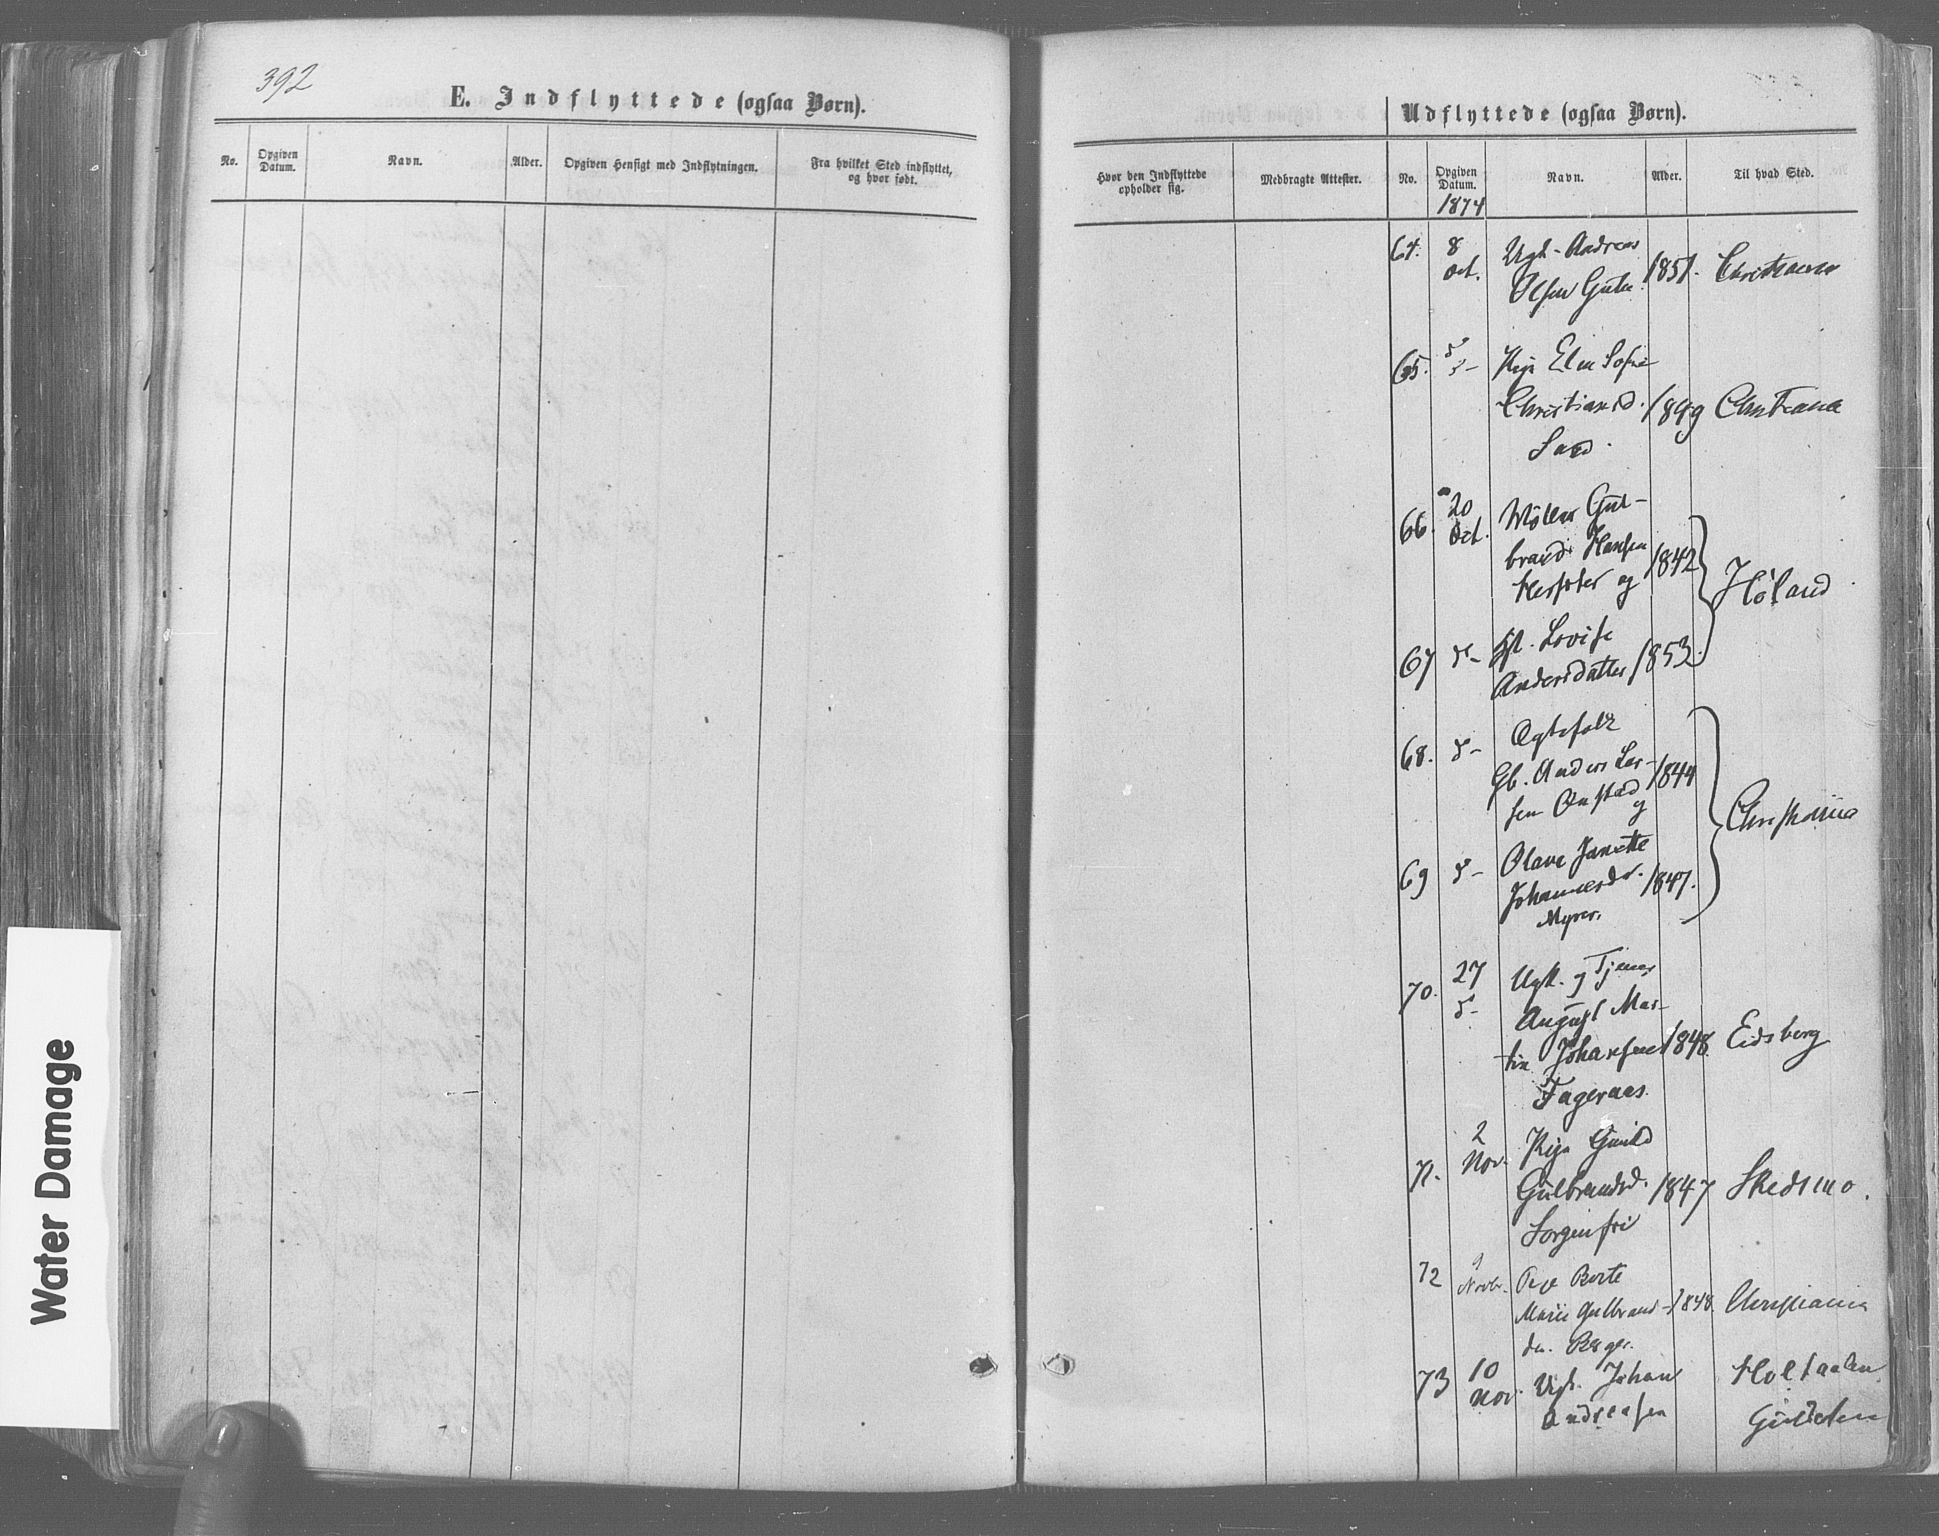 392
E. Indflyttede (ogsaa Børn).
No.
Opgiven
Datum.
Navn.
Alder.
Opgiven Hensigt med Indflytningen.
Fra hvilket Sted indflyttet,
og hvor født.
Udflyttede (ogsaa Børn).
Hvor den Indflyttede
opholder sig.
Medbragte Attester.
No.
Opgiven
Datum.
1874
Navn.
Alder.
Til hvad Sted.
64. 8 Ugk. Andreas
Oct. Olsen 1851. Christiania
65. Pige Elen Sofie
Christiansd. 1849 Christiania
66. 20 Møller Gul-
Oct. brand Hansen
og 1842
Høland
67 Lovise
Andersdatter 1853.
68. Ægtefolk
Gb. Anders Lar- 1844
sen Onstad
og
Christiania
69 Olave Janette
Johannesdr. 1847.
Myrer.
70. 27 Ugk. og Tjener
August Mar-
tin Johansen 1848 Eidsberg
Fageraas
71. 2 Pige Gunild
Nov. Gulbrandsd. 1847 Skedsmo.
Sorgenfri
72 9 Pige Berte
Novbr. Marie Gulbrands- 1848 Christiania
dr. Berger.
73 10 Ugk. Johan Holtaalen
Nov. Andreasen
Water Damage